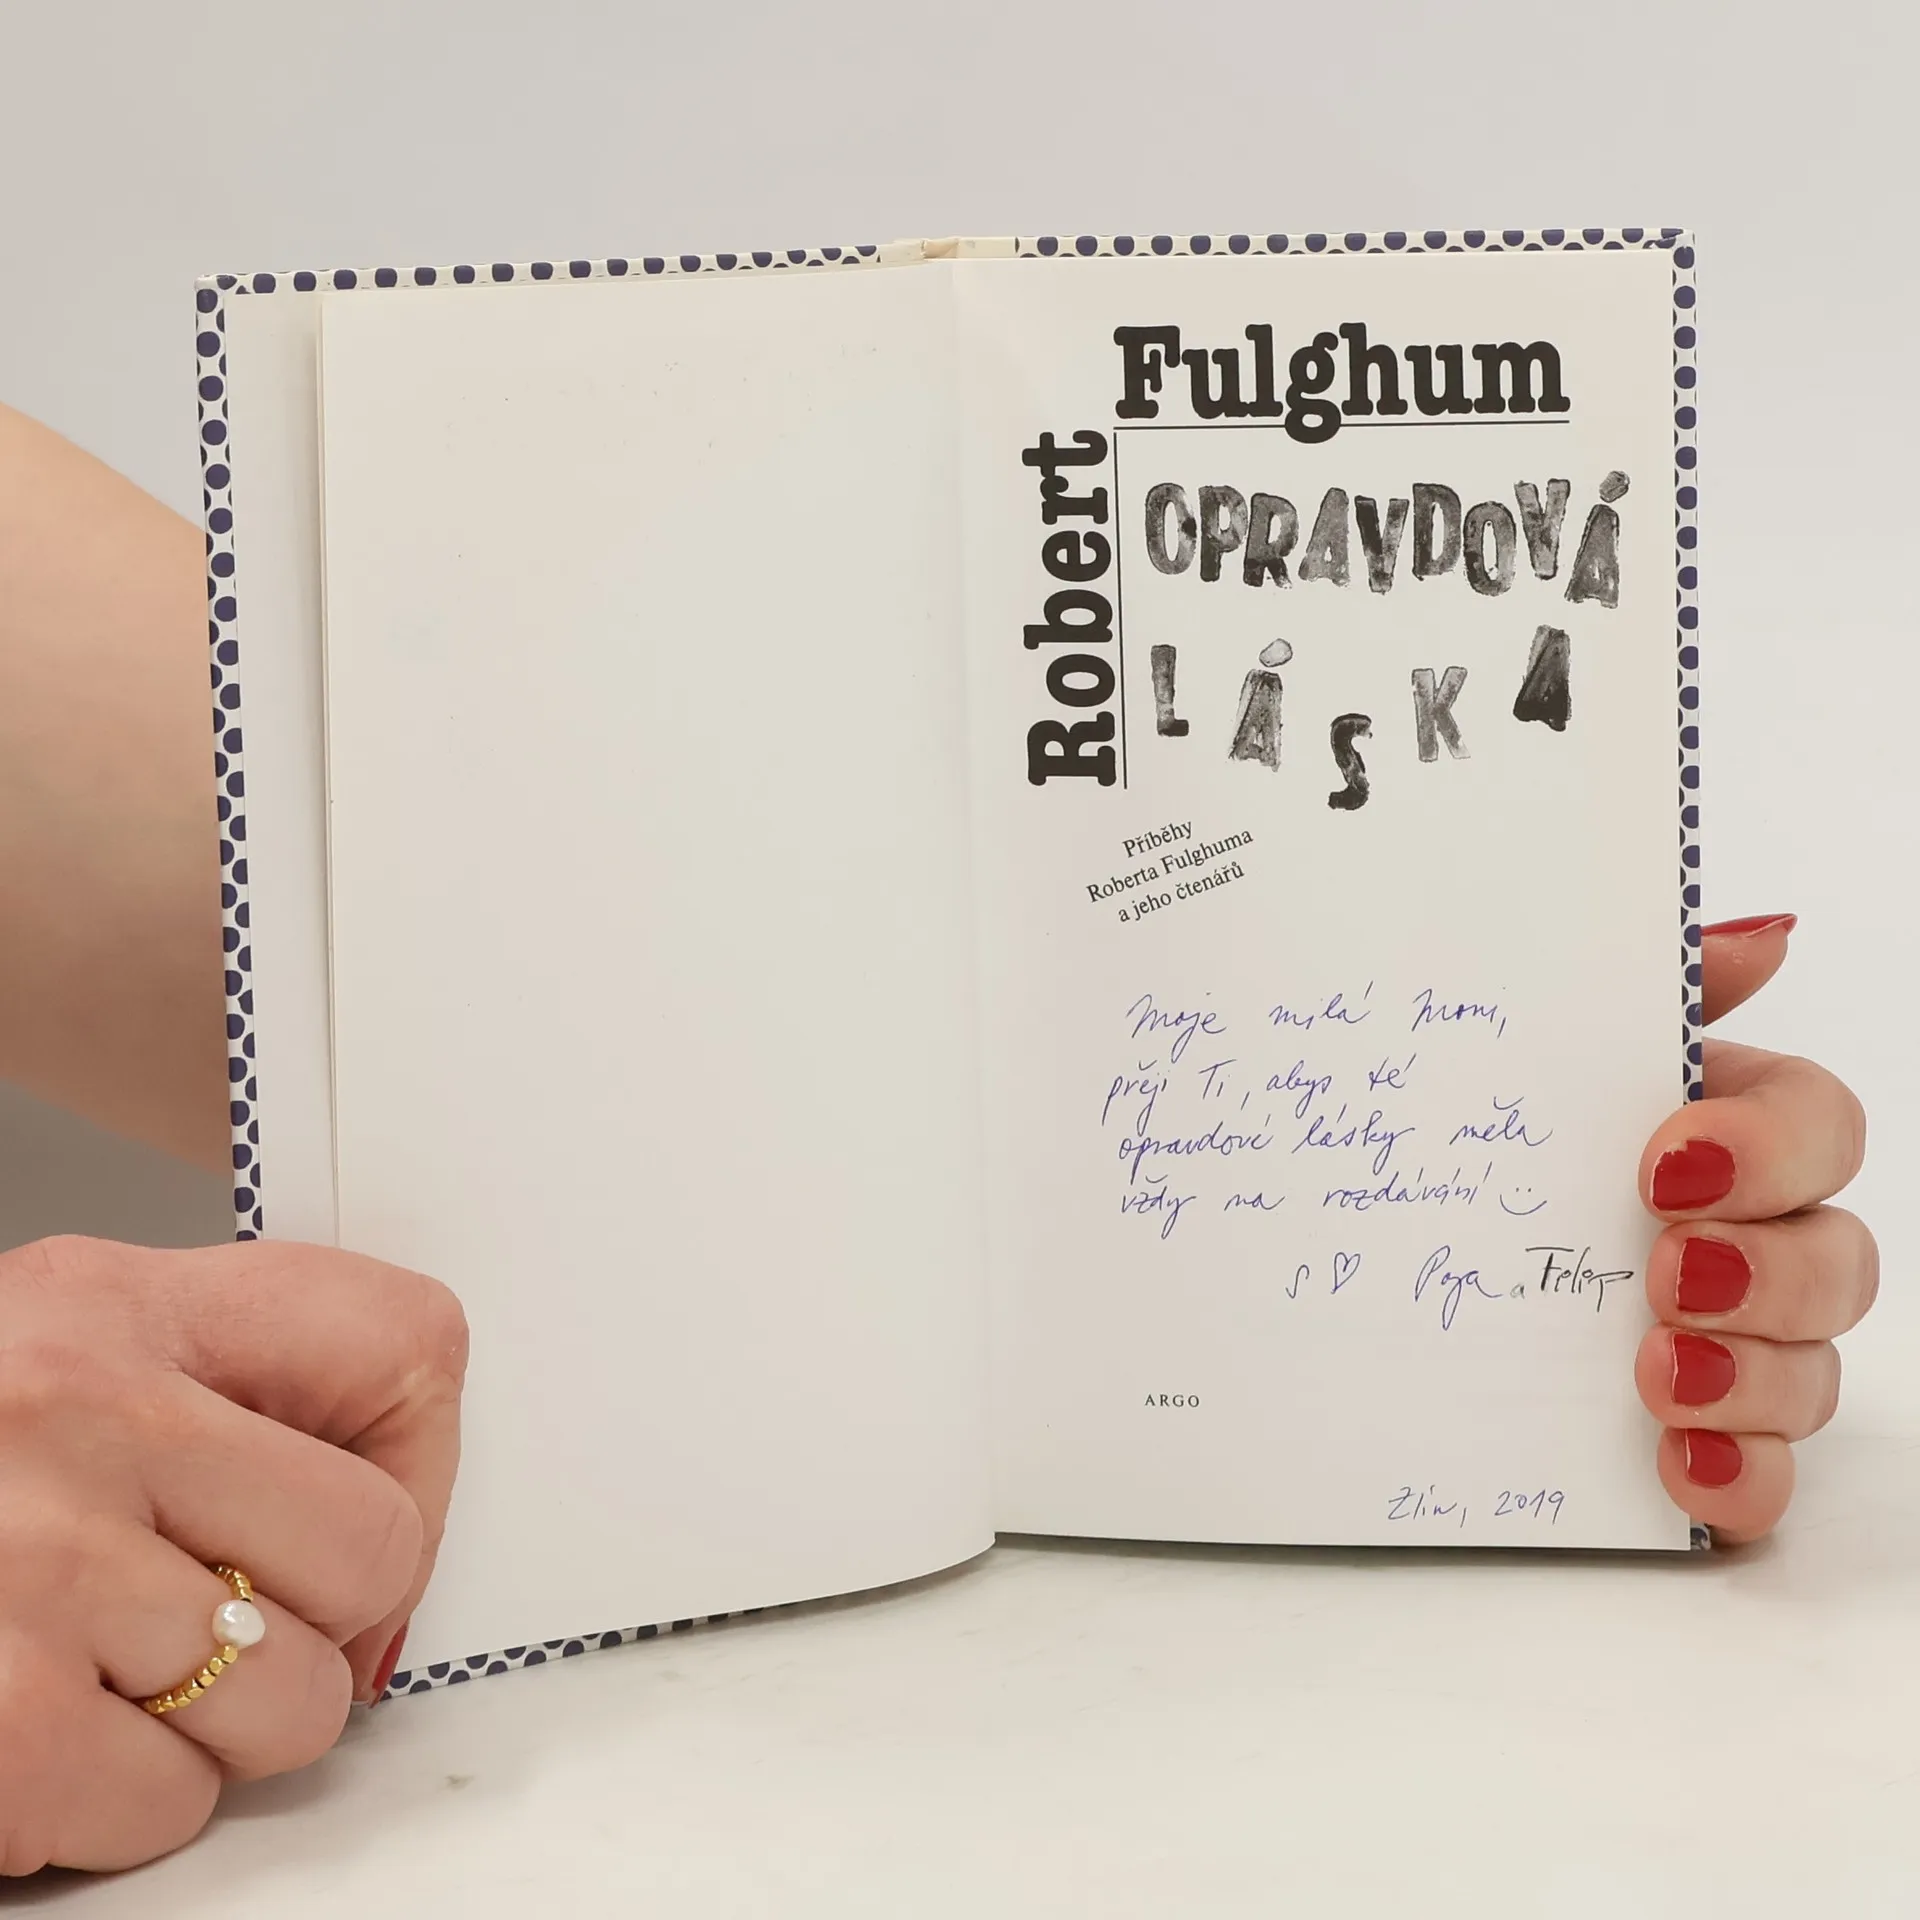 Robert
Fulghum
OPRAVDOVÁ
LÁSKA
Příběhy
Roberta Fulghuma
a jeho čtenářů
Moje milá Moni,
přeji Ti, abys té
opravdové lásky měla
vždy na rozdávání
s ♡ a Filip
ARGO
Zlín, 2019